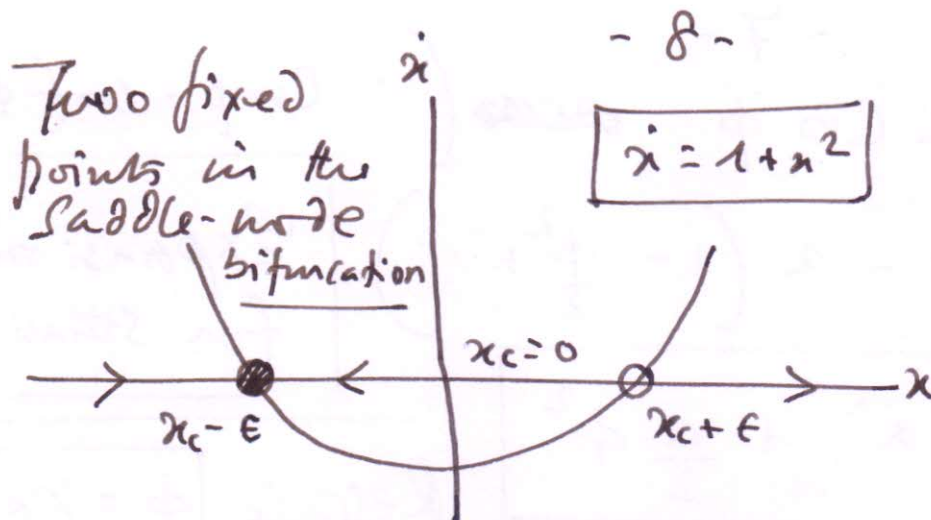 - 8 -
Two fixed
points in the
saddle-node
bifurcation
ẋ
ẋ = 1 + x²
x_c = 0
x
x_c - ϵ
x_c + ϵ